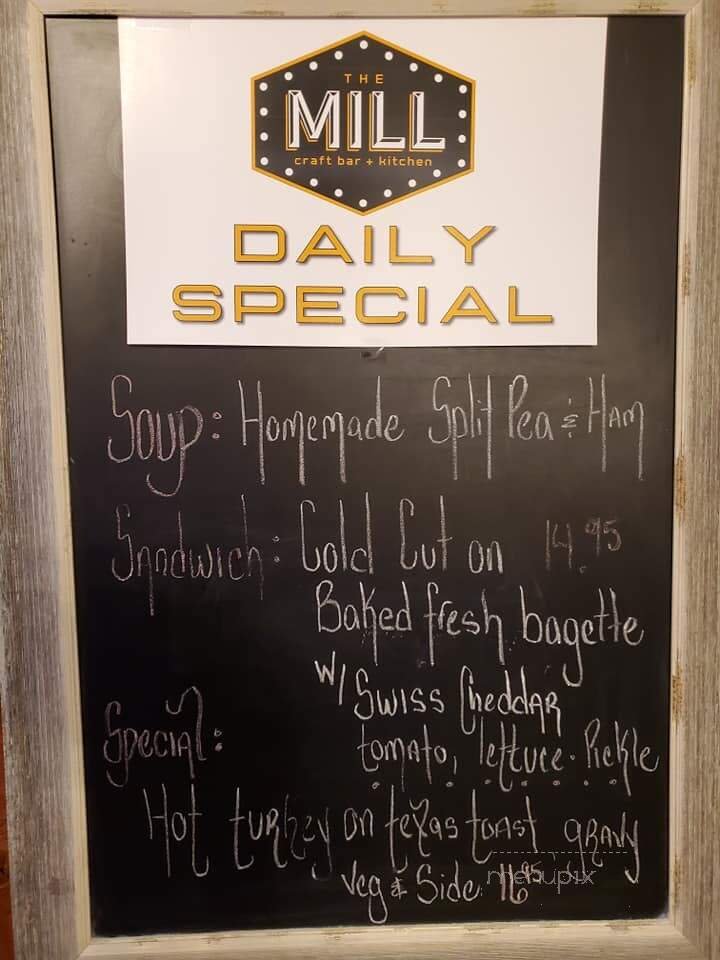 THE
MILL
craft bar + kitchen
DAILY
SPECIAL
Soup: Homemade Split Pea & Ham
Sandwich: Cold Cut on 14.95
Baked fresh bagette
w/ Swiss Cheddar
tomato, lettuce. Pickle
Special:
Hot turkey on texas toast gravy
Veg & Side 16.95
menupix